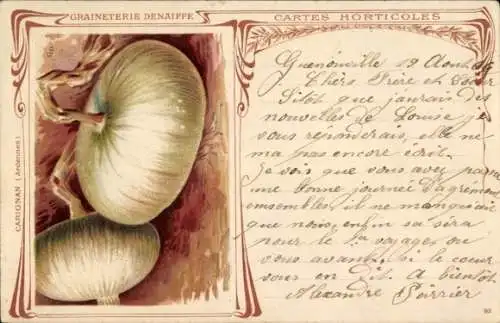 GRAINETERIE DENAIFFE
CARTES HORTICOLES
CARIGNAN (Ardennes)
19 Août
Chers Frère et Sœur
Sitot que j'aurais des
nouvelles de Louise je
vous réponderais, elle ne
m'a pas encore écrit.
Je vois que vous avez passé
une bonne journée d'agrément
ensembles il ne manquait
que nous, enfin sa sera
pour le 1er voyage, ou
vous avant, si le cœur
vous en dit. A bientôt
Alexandre
90